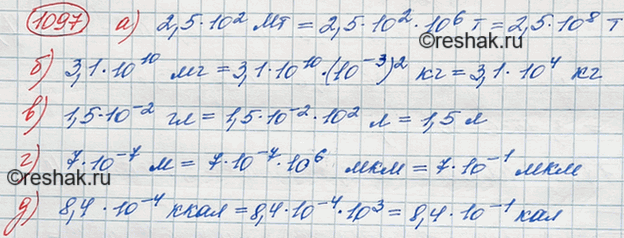 1097 а) 2,5·10² Мт = 2,5·10²·10⁶ т = 2,5·10⁸ т
б) 3,1·10¹⁰ мг = 3,1·10¹⁰·(10⁻³)² кг = 3,1·10⁴ кг
©reshak.ru
в) 1,5·10⁻² гл = 1,5·10⁻²·10² л = 1,5 л
г) 7·10⁻⁷ м = 7·10⁻⁷·10⁶ мкм = 7·10⁻¹ мкм
©reshak.ru
д) 8,4·10⁻⁴ ккал = 8,4·10⁻⁴·10³ = 8,4·10⁻¹ кал